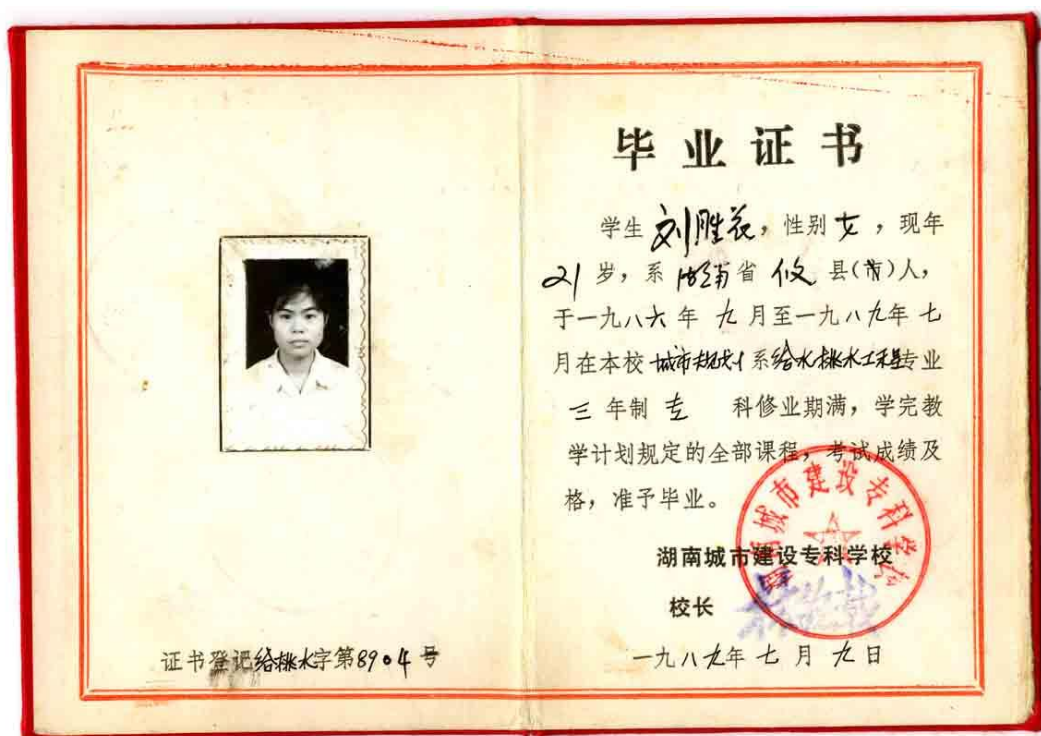 毕业证书
学生 刘胜花，性别 女，现年
21 岁，系 湖南 省 攸 县(市)人，
于一九八六 年 九 月至一九八九年 七
月在本校 城市规划 系 给水排水工程 专业
三 年制 专 科修业期满，学完教
学计划规定的全部课程，考试成绩及
格，准予毕业。
湖南城市建设专科学校
湖南城市建设专科学校
校长
一九八九年 七 月 九 日
证书登记给排水字第8904 号